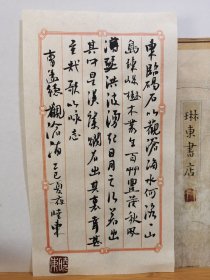 東臨碣石以觀滄海水何澹澹山
島竦峙樹木叢生百草豐茂秋風
蕭瑟洪波湧起日月之行若出
其中星漢燦爛若出其裏幸甚
至哉歌以詠志
曹孟德觀滄海
琳東書店